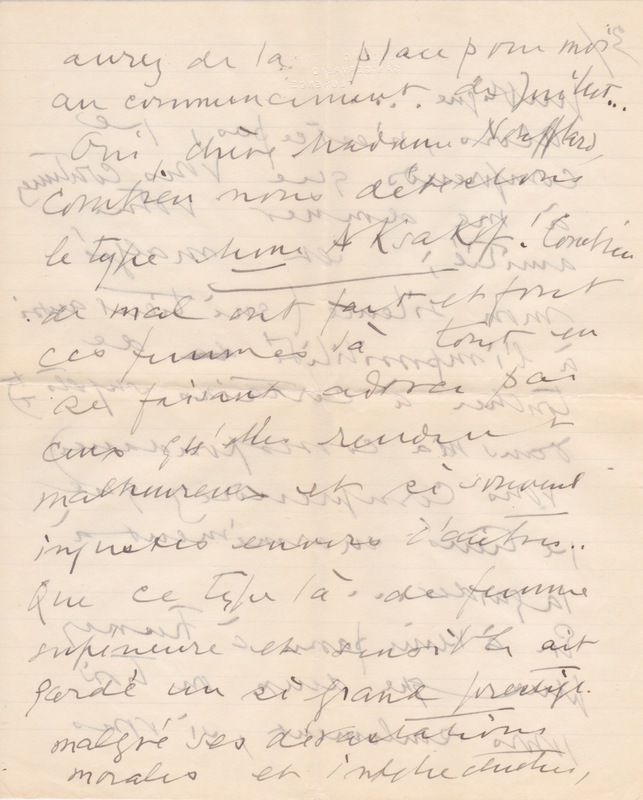 aurez de la place pour moi
au commencement. de Juillet...
Oui, chère Madame Noufflard,
combien nous détestons
le type Mme AKsaKoff! Combien
de mal ont fait et font
ces femmes là tout en
se faisant adorer par
ceux qu'elles rendent
malheureux et si souvent
injustes envers d'autres..
Que ce type là de femme
supérieure et sensible ait
gardé un si grand prestige
malgré ses dévastations
morales et intellectuelles,